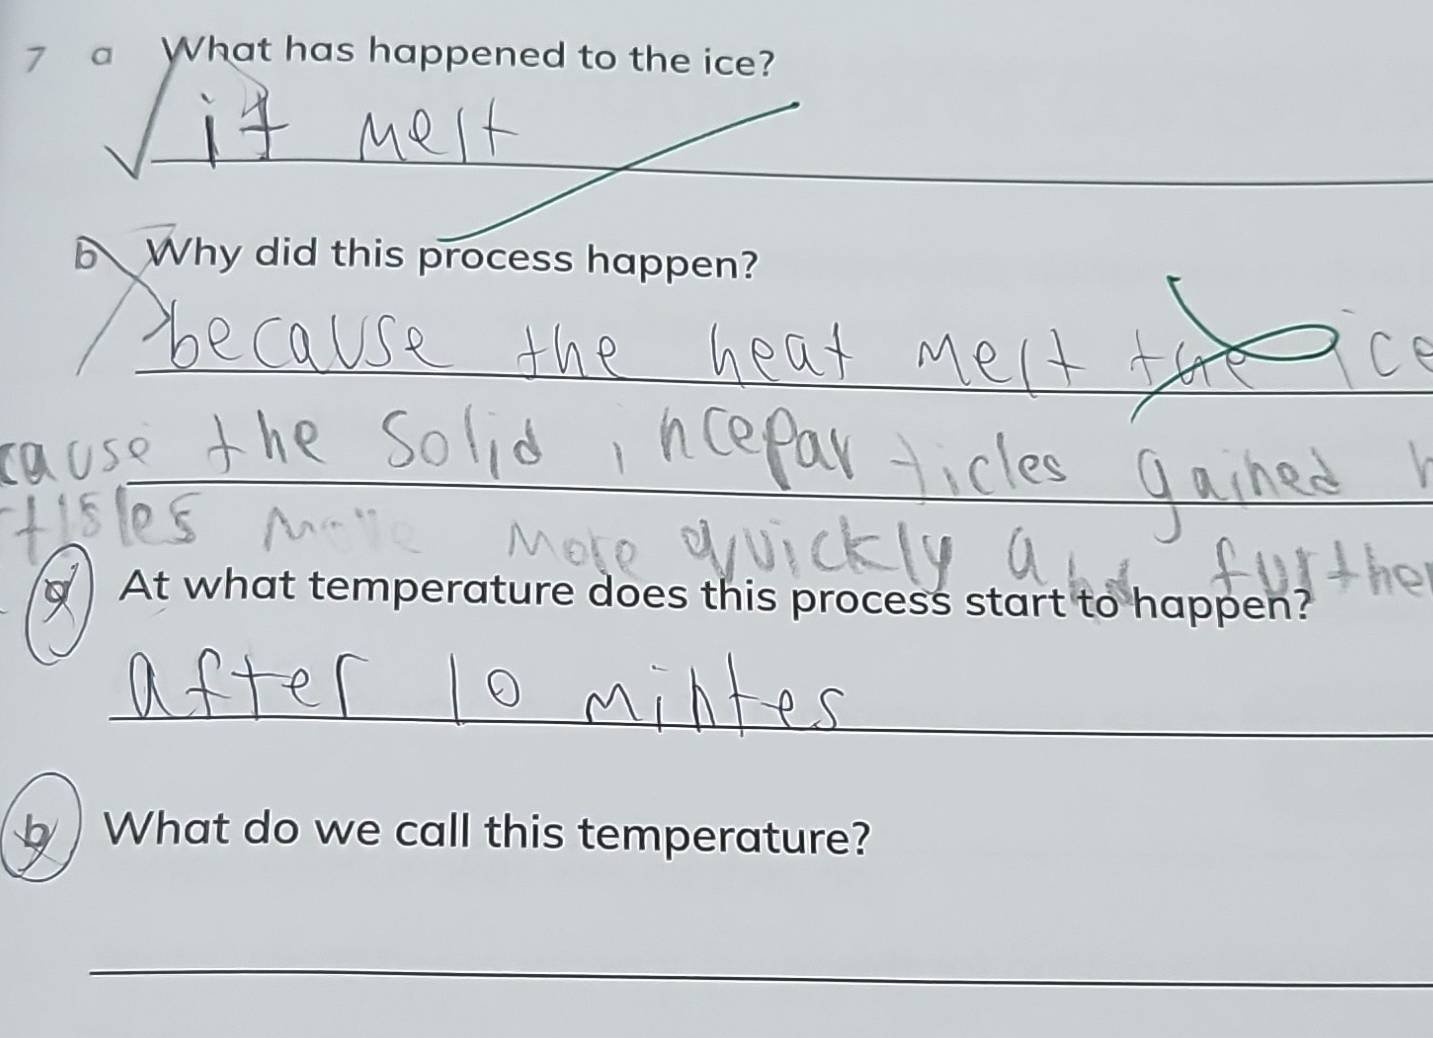 7 a What has happened to the ice?
it melt
b Why did this process happen?
because the heat melt the ice
cause the solid , nce par ticles gained h
tisles move more quickly and further
a At what temperature does this process start to happen?
after 10 mintes
b What do we call this temperature?